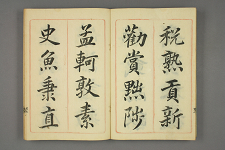 稅熟貢新
勸賞黜陟
孟軻敦素
史魚秉直